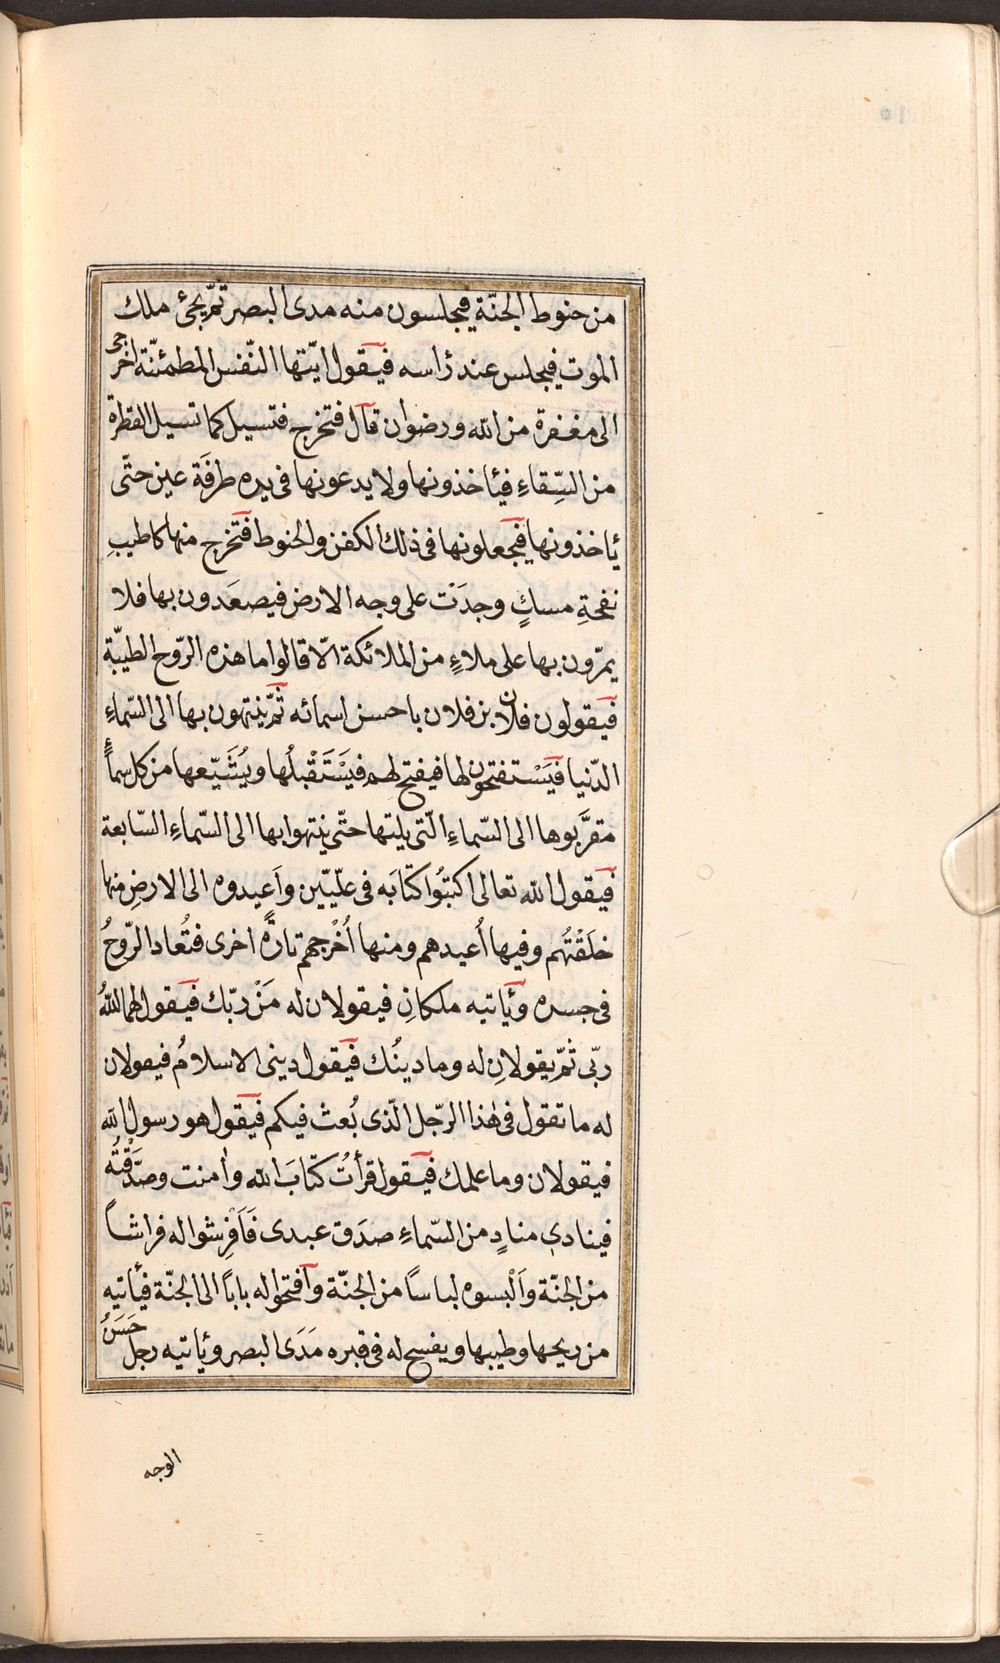 من حنوط الجنّة فيجلسون منه مدى البصر ثمّ يجئ ملك
الموت فيجلس عند رأسه فيقول ايّتها النّفس المطمئنّة اخرجى
الى مغفرة من الله ورضوان قال فتخرج فتسيل كما تسيل القطرة
من السِّقاءِ فيأخذونها ولا يدعونها فى يده طرفَة عين حتّى
يأخذونها فيجعلونها فى ذلك الكفن والحنوط فتخرج منها كاطيبِ
نفحةِ مسكٍ وجدَتْ على وجه الارض فيصعَدون بها فلا
يمرّون بها على ملاءٍ من الملائكة الّا قالوا ما هذه الرّوح الطيّبة
فيقولون فلان بن فلان باحسن اسمائه ثمّ ينتهون بها الى السّماءِ
الدّنيا فيَسْتفتحون لها فيفتح لهم فيَسْتَقْبلُها ويُشَيّعها من كل سماءٍ
مقرَّبوها الى السّماءِ الّتى يليتها حتّى ينتهوا بها الى السّماءِ السّابعة
فيقول الله تعالى اكتبُوا كتابَه فى علّيّين واَعيدوه الى الارضِ منها
خلَقْتُهم وفيها اُعيدهم ومنها اُخْرجهم تارةً اخرى فتُعاد الرّوحُ
فى جسده ويأتيه ملكانِ فيقولان له مَنْ ربّك فيقول لهما اللّٰهُ
ربّى ثمّ يقولانِ له وما دينُك فيقول دينى الاسلامُ فيقولان
له ما تقول فى هٰذا الرّجل الّذى بُعث فيكم فيقول هو رسول الله
فيقولان وما علمك فيقول قرأتُ كتابَ الله وآمنت وصدَّقتُه
فينادى منادٍ من السّماءِ صدَق عبدى فَاَفرِشوا له فراشاً
من الجنّة واَلْبسوه لباساً من الجنّة وافتحوا له باباً الى الجنّة فيأتيه
من ريحها وطيبها ويفسح له فى قبره مَدَى البصر ويأتيه رجل حَسَنُ
الوجه